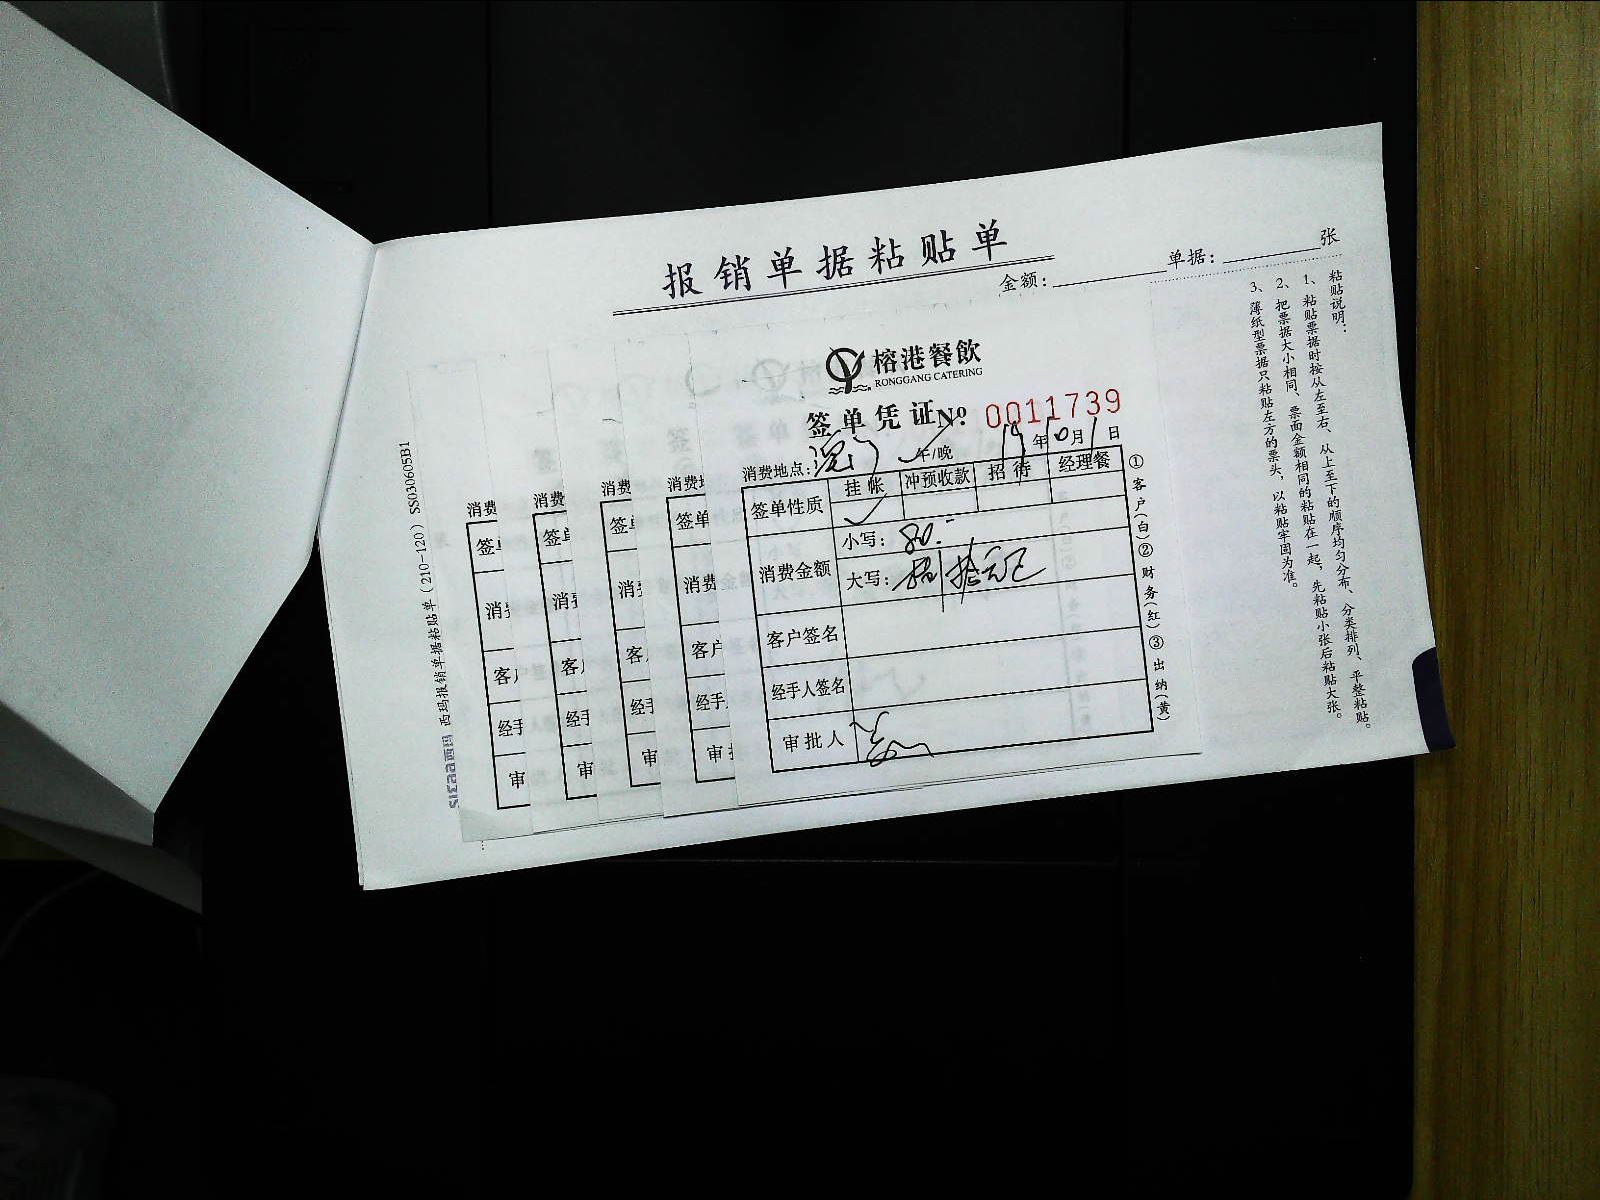 报销单据粘贴单
金额：
单据：
张
榕港餐飲
RONGGANG CATERING
签单凭证No 0011739
消费地点：
午/晚
19年10月1日
签单性质
挂帐
冲预收款
招待
经理餐
消费金额
小写：80.-
大写：捌拾元正
客户签名
经手人签名
审批人
①客户(白)②财务(红)③出纳(黄)
粘贴说明：
1、粘贴票据时按从左至右、从上至下的顺序均匀分布、分类排列、平整粘贴。
2、把票据大小相同、票面金额相同的粘贴在一起，先粘贴小张后粘贴大张。
3、薄纸型票据只粘贴左方的票头，以粘贴牢固为准。
消费
签单
消费
客户
经手
审
消费
签单
消费
客户
经手
审
消费
签单
消费
客户
经手
审
消费地
签单
消费
客户
经手
审批
西玛 西玛报销单据粘贴单（210-120）SS030605B1